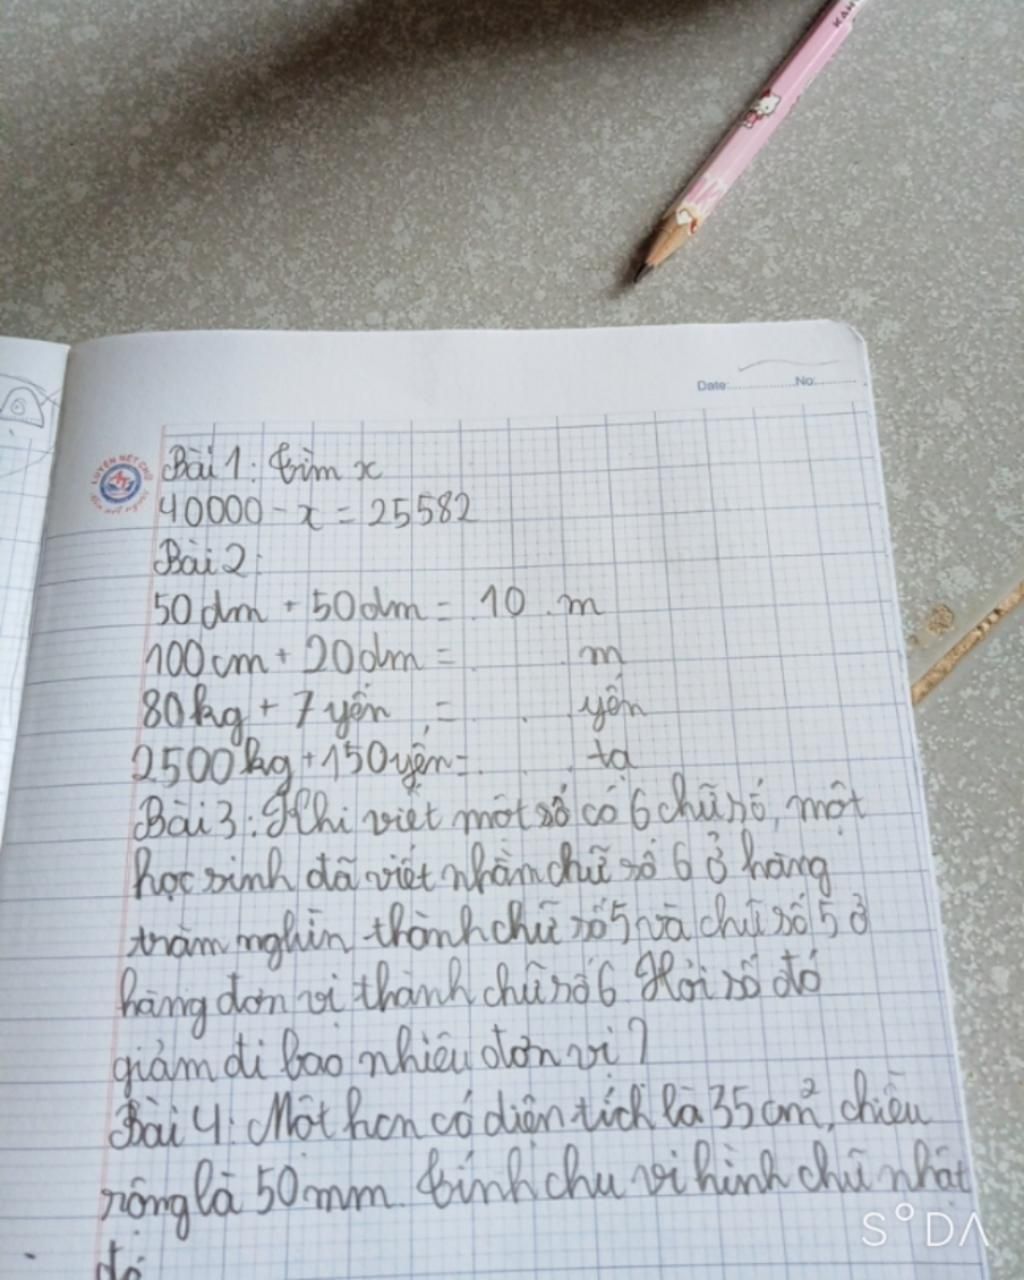 KAH
Date:...............No:..........
LUYỆN NÉT CHỮ
Bài 1: tìm x
40000 - x = 25582
Bài 2:
50dm + 50dm = 10 . m
100cm + 20dm = . . m
80kg + 7 yến = . . yến
2500kg + 150yến = . . tạ
Bài 3: Khi viết một số có 6 chữ số, một
học sinh đã viết nhầm chữ số 6 ở hàng
trăm nghìn thành chữ số 5 và chữ số 5 ở
hàng đơn vị thành chữ số 6 Hỏi số đó
giảm đi bao nhiêu đơn vị?
Bài 4: Một hcn có diện tích là 35cm², chiều
rộng là 50mm. tính chu vi hình chữ nhật
đó
SODA